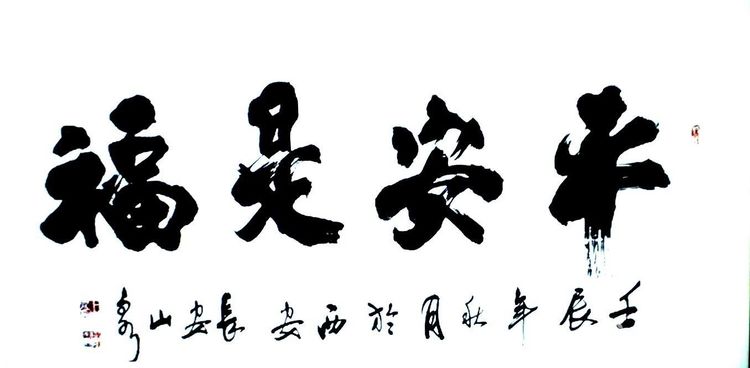 平安是福
壬辰年秋月於西安長安山泉